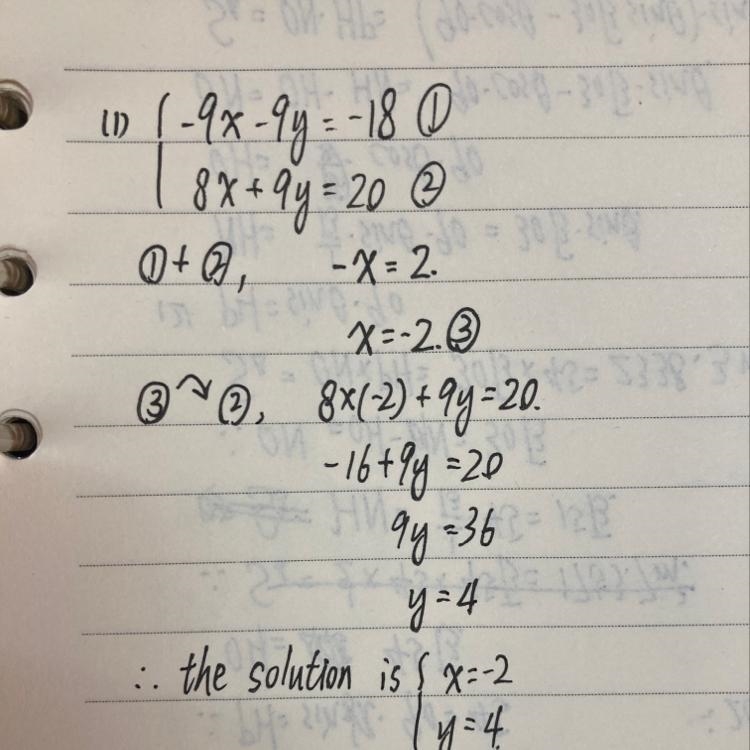 (1) { -9x-9y=-18 ①
8x+9y=20 ②
①+②, -x=2.
x=-2.③
③↷②, 8x(-2)+9y=20.
-16+9y=20
9y=36
y=4
∴ the solution is { x=-2
y=4.